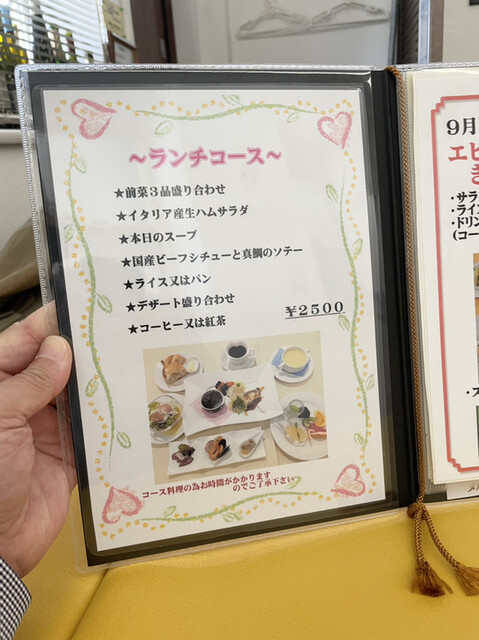 ～ランチコース～
★前菜３品盛り合わせ
★イタリア産生ハムサラダ
★本日のスープ
★国産ビーフシチューと真鯛のソテー
★ライス又はパン
★デザート盛り合わせ
★コーヒー又は紅茶
￥2500
コース料理の為お時間がかかります
のでご了承下さい
9月
エビ
・サラ
・ライ
・ドリン
(コー